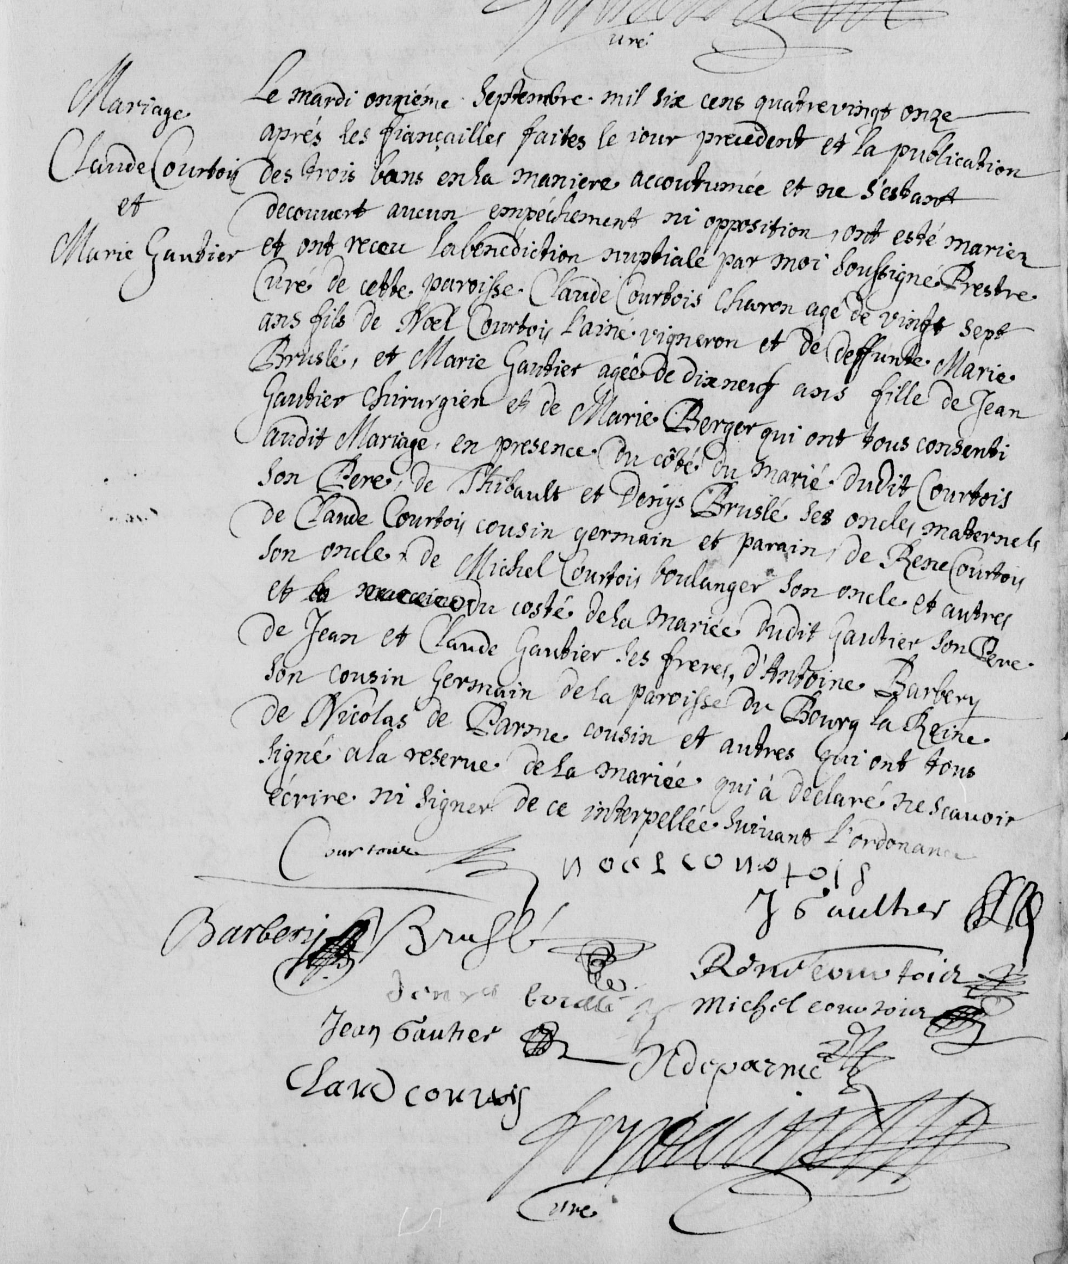 uré
Mariage
Claude Courtois
et
Marie Gautier
Le mardi onziéme Septembre mil six cens quatrevingt onze
aprés les fiançailles faites le iour precedent et la publication
des trois bans en la maniere accoutumée et ne s'estant
decouvert aucun empéchement ni opposition, ont esté mariez
et ont receu la bénédiction nuptiale par moi soussigné Prestre
Curé de cette paroisse. Claude Courtois charon agé de vingt sept
ans fils de Noel Courtois l'ainé vigneron et de deffunte Marie
Bruslé, et Marie Gautier agée de dixneuf ans fille de Jean
Gautier chirurgien et de Marie Berger qui ont tous consenti
audit Mariage, en presence du côté du marié dudit Courtois
son Pere, de Thibault et Denys Bruslé ses oncles maternels
de Claude Courtois cousin germain et parain, de Rene Courtois
son oncle, de Michel Courtois boulanger son oncle et autres
et du costé de la mariée dudit Gautier son Pere
de Jean et Claude Gautier ses freres, d'Antoine Barbery
son cousin germain de la paroisse du Bourg la Reine
de Nicolas de Parme cousin et autres qui ont tous
signé a la reserve de la mariée qui a déclaré ne scavoir
écrire ni signer de ce interpellée suivant l'ordonance
Courtois
noel courtois
J Gaultier
Barbery
Bruslé
René courtois
denys
Michel courtois
Jean Gautier
N deparme
Claud courtois
Curé